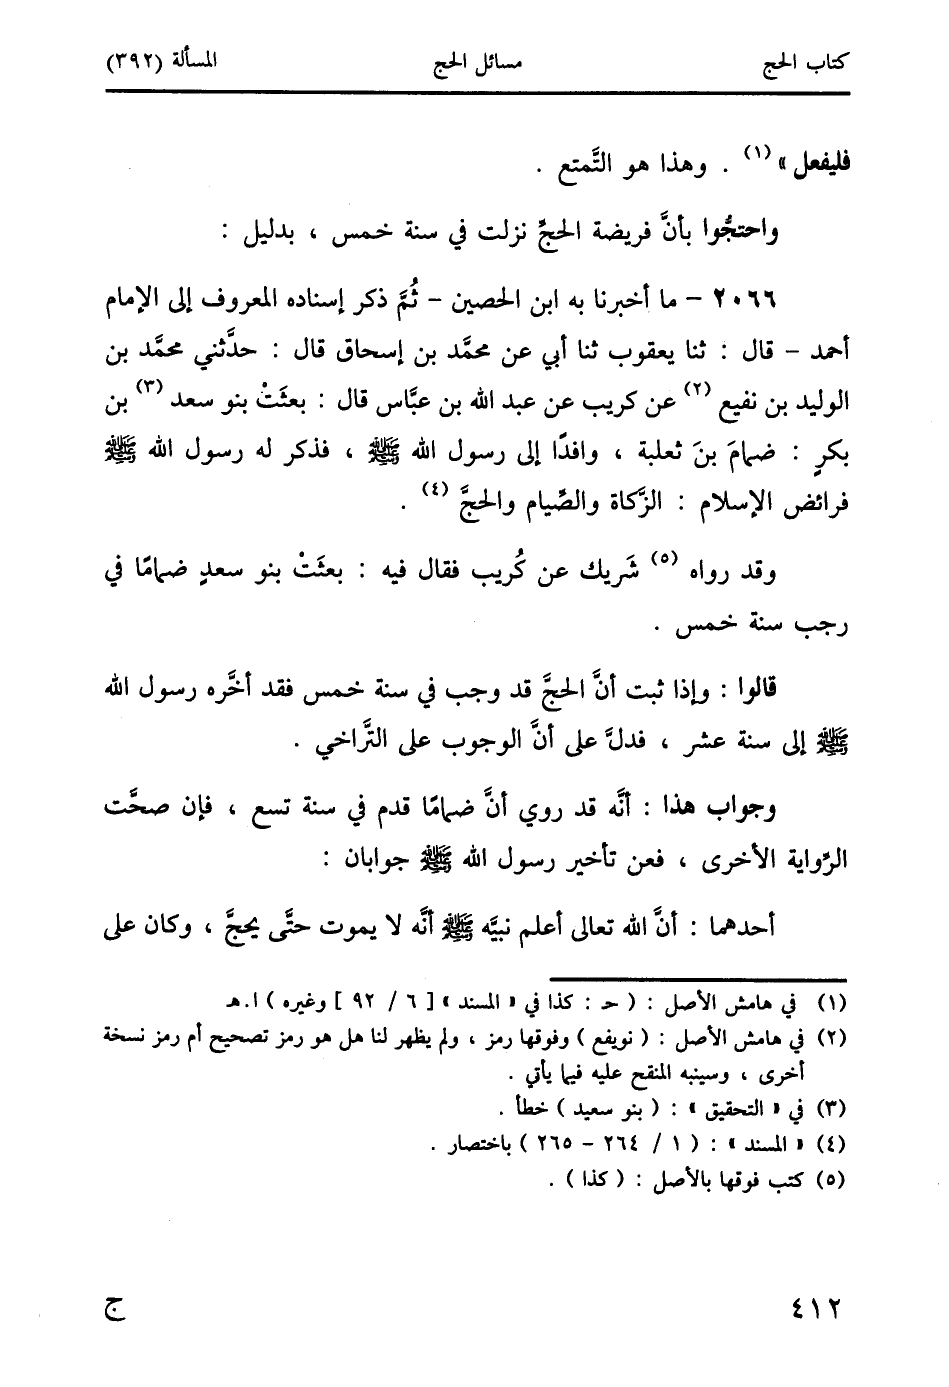 كتاب الحج مسائل الحج المسألة (٣٩٢)
فليفعل » (١) . وهذا هو التَّمتع .
واحتجُّوا بأنَّ فريضة الحجِّ نزلت في سنة خمس ، بدليل :
٢٠٦٦ – ما أخبرنا به ابن الحصين – ثُمَّ ذكر إسناده المعروف إلى الإمام
أحمد – قال : ثنا يعقوب ثنا أبي عن محمَّد بن إسحاق قال : حدَّثني محمَّد بن
الوليد بن نفيع (٢) عن كريب عن عبد الله بن عبَّاس قال : بعثَتْ بنو سعد (٣) بن
بكرٍ : ضمامَ بنَ ثعلبة ، وافدًا إلى رسول الله ﷺ ، فذكر له رسول الله ﷺ
فرائض الإسلام : الزَّكاة والصِّيام والحجَّ (٤) .
وقد رواه (٥) شَريك عن كُريب فقال فيه : بعثَتْ بنو سعدٍ ضمامًا في
رجب سنة خمس .
قالوا : وإذا ثبت أنَّ الحجَّ قد وجب في سنة خمس فقد أخَّره رسول الله
ﷺ إلى سنة عشر ، فدلَّ على أنَّ الوجوب على التَّراخي .
وجواب هذا : أنَّه قد روي أنَّ ضمامًا قدم في سنة تسع ، فإن صحَّت
الرِّواية الأخرى ، فعن تأخير رسول الله ﷺ جوابان :
أحدهما : أنَّ الله تعالى أعلم نبيَّه ﷺ أنَّه لا يموت حتَّى يحجَّ ، وكان على
(١) في هامش الأصل : ( حـ : كذا في « المسند » [ ٦ / ٩٢ ] وغيره ) ا.هـ
(٢) في هامش الأصل : ( نويفع ) وفوقها رمز ، ولم يظهر لنا هل هو رمز تصحيح أم رمز نسخة
أخرى ، وسينبه المنقح عليه فيما يأتي .
(٣) في « التحقيق » : ( بنو سعيد ) خطأ .
(٤) « المسند » : ( ١ / ٢٦٤ – ٢٦٥ ) باختصار .
(٥) كتب فوقها بالأصل : ( كذا ) .
٤١٢ ج